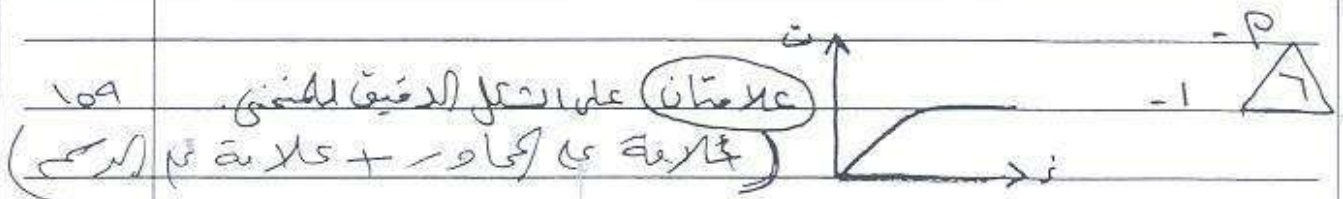 م-
ت
٦
١-
علامتان على الشكل الدقيق للمنحنى.
١٥٩
(علامة على المحاور + علامة على الرسم)
ز